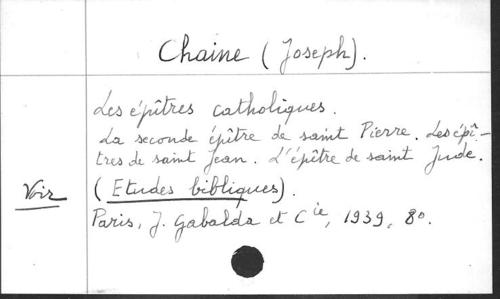 Chaine (Joseph).
Les épîtres catholiques.
La seconde épître de saint Pierre. Les épî-
tres de saint Jean. L'épître de saint Jude.
Voir (Etudes bibliques).
Paris, J. Gabalda et Cie, 1939, 8o.